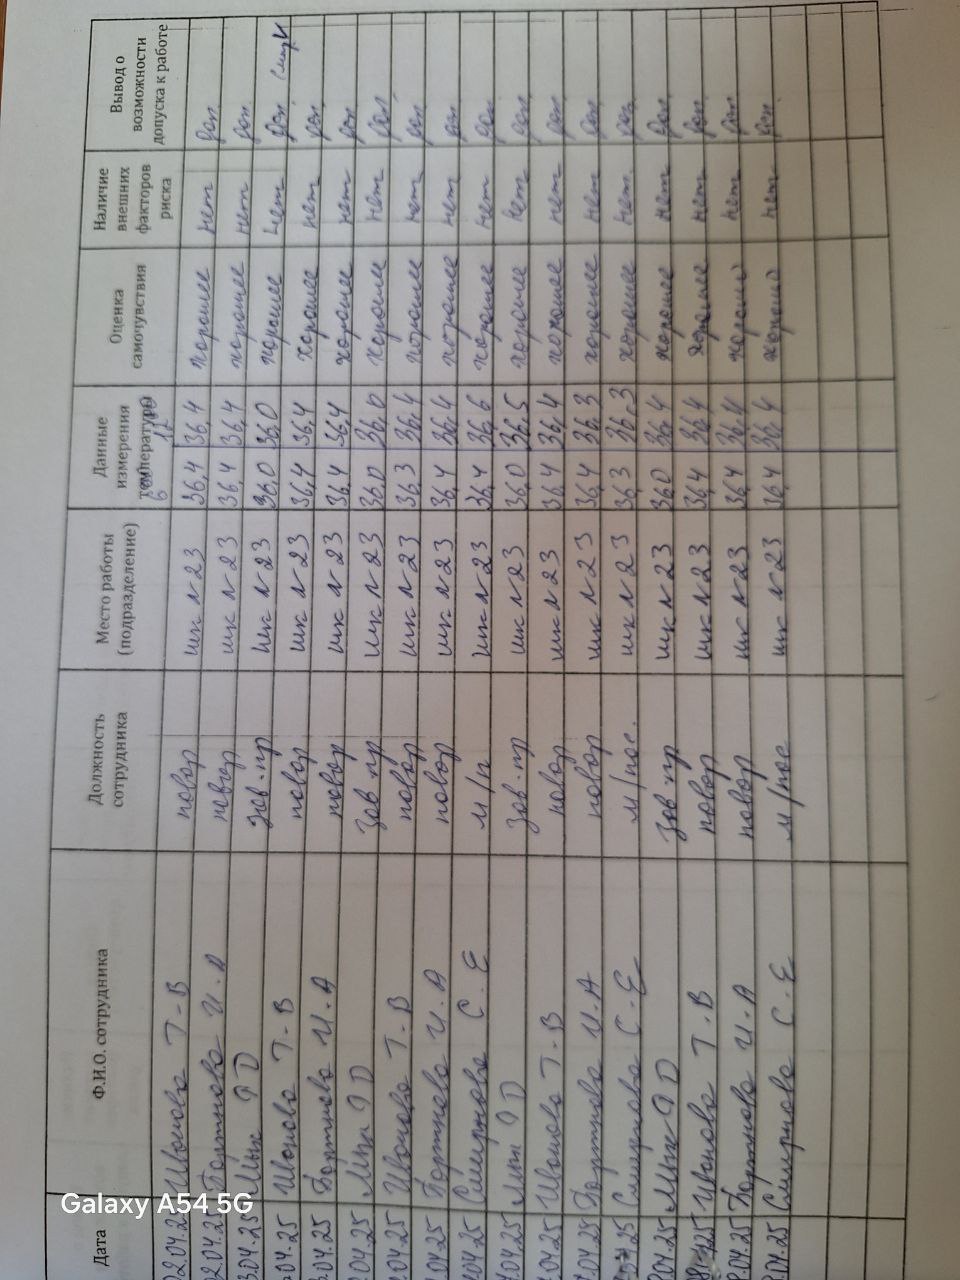 Дата Ф.И.О. сотрудника Должность сотрудника Место работы (подразделение) Данные измерения температуры Оценка самочувствия Наличие внешних факторов риска Вывод о возможности допуска к работе
02.04.2 Иванова Т-В повар шк N23 36,4 36,4 хорошее нет доп
02.04.25 Бортнова И.А повар шк N23 36,4 36,4 хорошее нет доп
3.04.25 зав.пр шк N23 36,0 36,0 хорошее нет доп
04.25 Иванова Т-В повар шк N23 36,4 36,4 хорошее нет доп
.04.25 Бортнова И.А повар шк N23 36,4 36,4 хорошее нет доп
.04.25 зав.пр шк N23 36,0 36,0 хорошее нет доп
.04.25 Иванова Т.В повар шк N23 36,3 36,4 хорошее нет доп
.04.25 Бортнова И.А повар шк N23 36,4 36,4 хорошее нет доп
.04.25 Смирнова С.Е м/п шк N23 36,4 36,6 хорошее нет доп
.04.25 зав.пр шк N23 36,0 36,5 хорошее нет доп
.04.25 Иванова Т-В повар шк N23 36,4 36,4 хорошее нет доп
.04.25 Бортнова И.А повар шк N23 36,4 36,3 хорошее нет доп
.25 Смирнова С.Е м/пос. шк N23 36,3 36,3 хорошее нет доп
.04.25 зав.пр шк N23 36,0 36,4 хорошее нет доп
.25 Иванова Т.В повар шк N23 36,4 36,4 хорошее нет доп
.04.25 Бортнова И.А повар шк N23 36,4 36,4 хорошее нет доп
.04.25 Смирнова С.Е м/пос шк N23 36,4 36,4 хорошее нет доп
Galaxy A54 5G